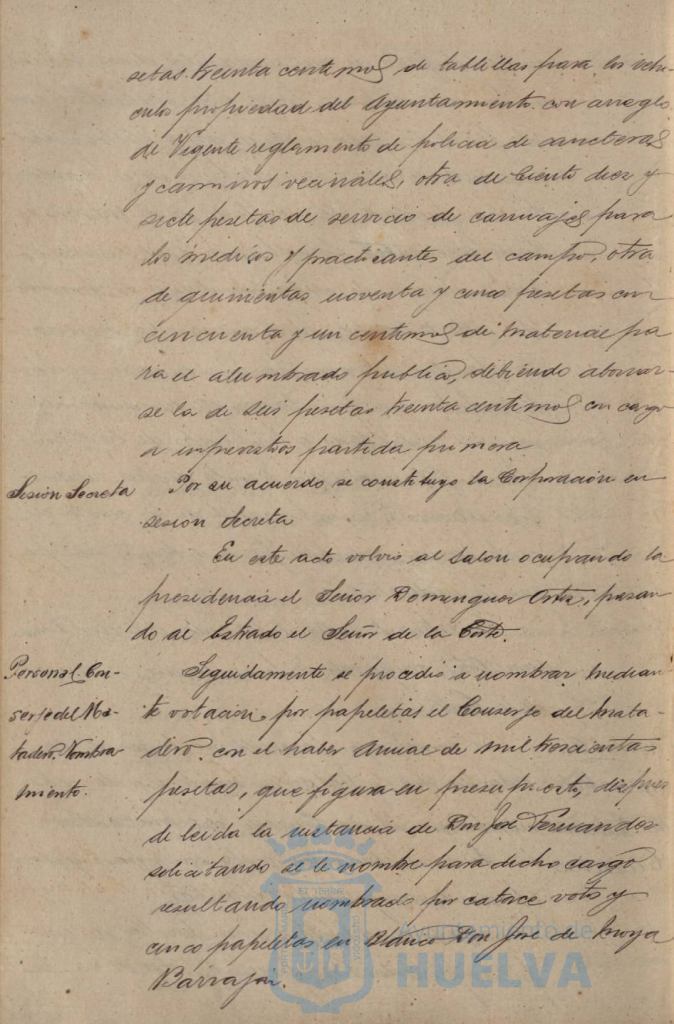 setas treinta centimos de tablillas para los vehi-
culos propiedad del Ayuntamiento con arreglo
de Vigente reglamento de policia de carreteras
y caminos vecinales, otra de Ciento diez y
siete pesetas de servicio de carruajes para
los medicos y practicantes del campo, otra
de quinientas noventa y cinco pesetas con
cincuenta y un centimos de material pa
ra el alumbrado publico, debiendo abonar-
se la de seis pesetas treinta centimos con cargo
a imprevistos partida primera
Sesión Secreta
Por su acuerdo se constituyo la Corporación en
sesion secreta
En este acto volvio al salon ocupando la
presidencia el Señor Dominguez Ortiz, pasan
do al Estrado el Señor de la Corte.
Personal Con-
serje del Ma-
tadero. Nombra
miento.
Seguidamente se procedio a nombrar median
te votación, por papeletas el Conserje del Mata-
dero. con el haber anual de mil trescientas
pesetas, que figura en presupuesto, despues
de leida la instancia de Don José Fernandez
solicitando se le nombre para dicho cargo
resultando nombrado por catorce votos y
cinco papeletas en Blanco Don José de Moya
Barraja.
Ayuntamiento de
HUELVA